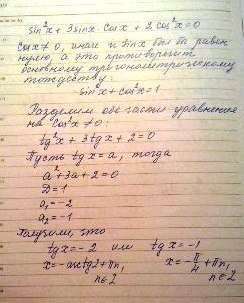 sin²x + 3sinx · cosx + 2cos²x = 0
cosx ≠ 0, иначе и sinx был бы равен
нулю, а это противоречит
основному тригонометрическому
тождеству
sin²x + cos²x = 1
Разделим обе части уравнения
на cos²x ≠ 0.
tg²x + 3tgx + 2 = 0
Пусть tgx = a, тогда
a² + 3a + 2 = 0
D = 1
a₁ = -2
a₂ = -1
Получим, что
tgx = -2 или tgx = -1
x = -arctg2 + πn, x = -π/4 + πn,
n∈Z n∈Z